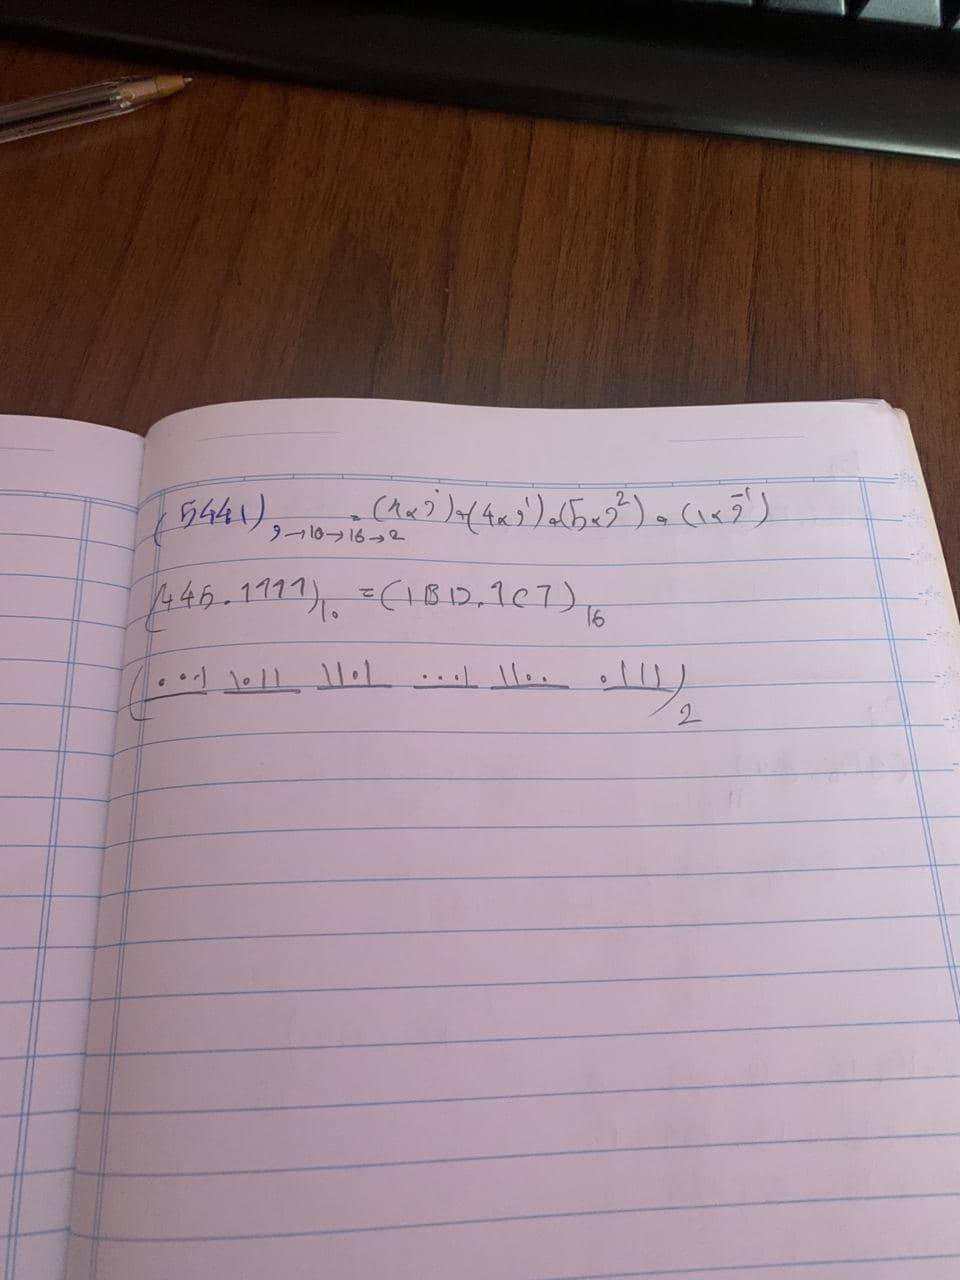 (5441)9→10→16→2 = (4×9⁰)+(4×9¹)+(5×9²)+(1×9⁻¹)
(445.1111)10 = (1BD.1C7)16
(0001 1011 1101 0001 1100 0111)2